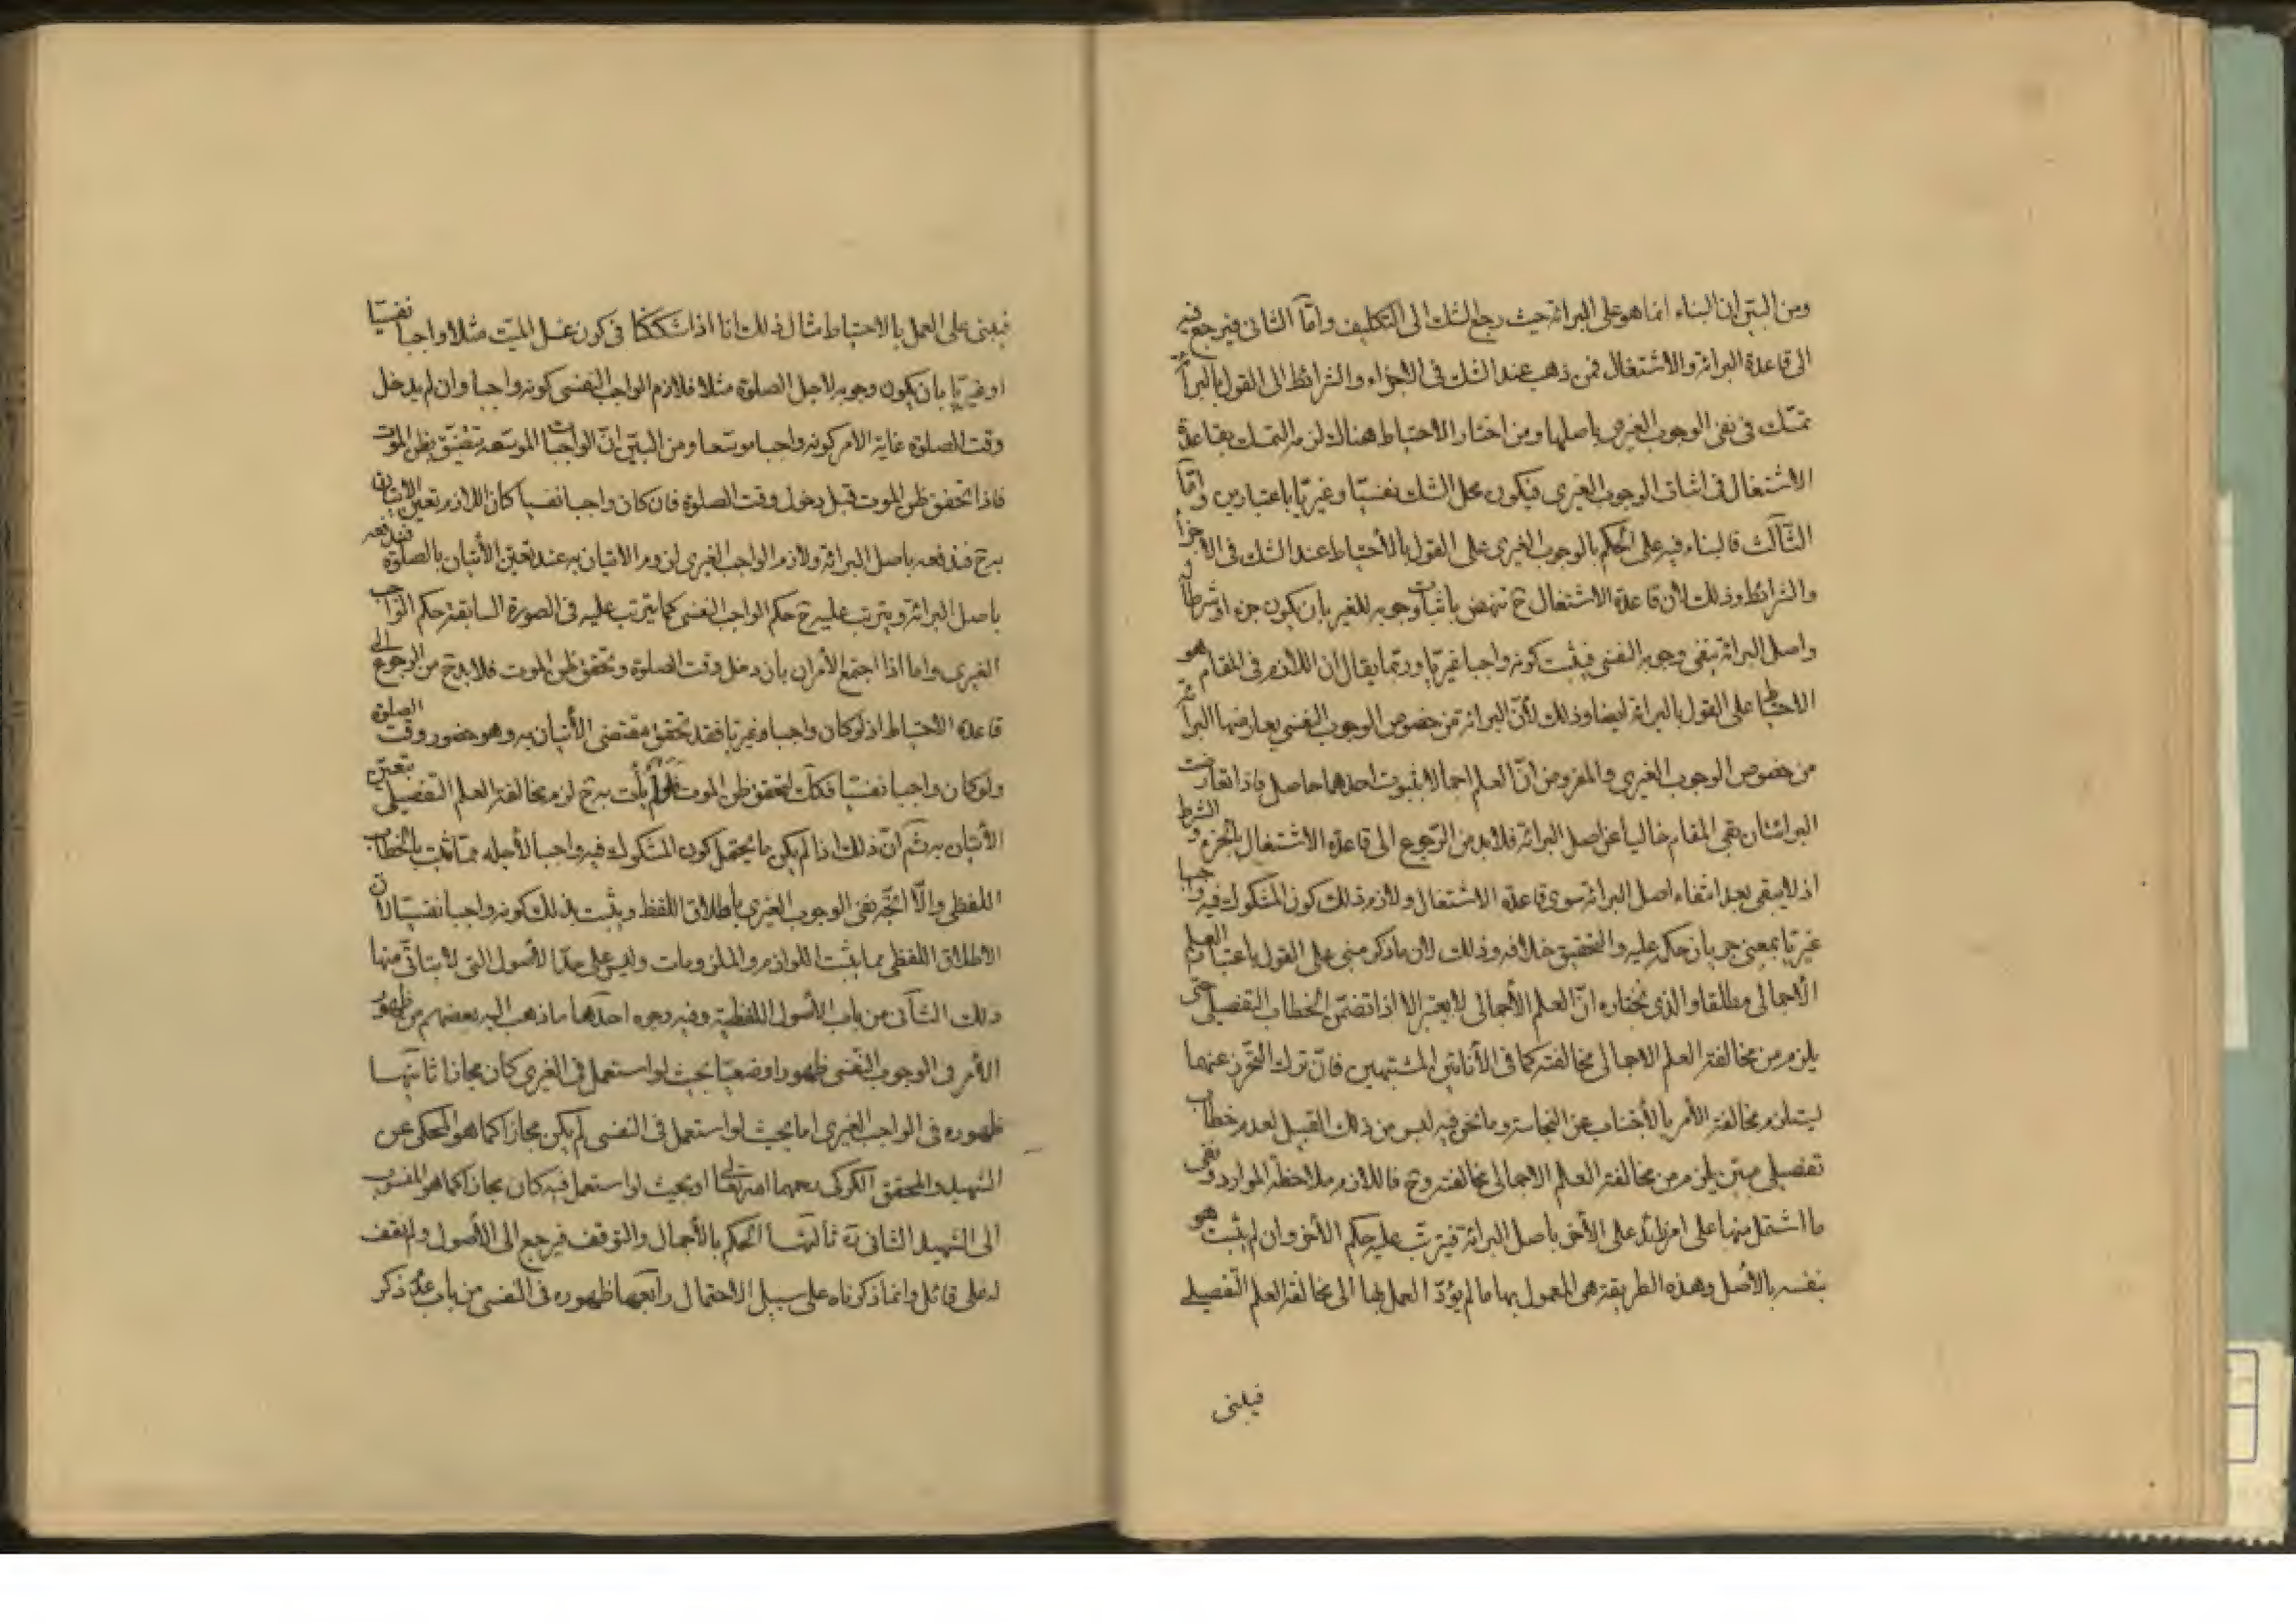 ومن البيّن ان البناء انما هو على البرائة حيث رجع الشك الى التكليف وامّا الثانى فيرجع فيه
الى قاعدة البرائة والاشتغال فمن ذهب عند الشك فى الاجزاء والشرائط الى القول بالبرائة
تمسّك فى نفى الوجوب الغيرى باصلها ومن اختار الاحتياط هناك لزمه التمسك بقاعدة
الاشتغال فى اثبات الوجوب الغيرى فيكون محل الشك نفسيّا وغيريّا باعتبارين وامّا
الثّالث فالبناء فيه على الحكم بالوجوب الغيرى على القول بالأحتياط عند الشك فى الاجزاء
والشرائط وذلك لأن قاعدة الاشتغال ح تنهض باثبات وجوبه للغير بان يكون جزء او شرطا له
واصل البرائة ينفى وجوبه النفسى فيثبت كونه واجبا غيريّا وربّما يقال ان اللازم فى المقام هو
الاحتياط على القول بالبرائة ايضا وذلك لأنّ البرائة من خصوص الوجوب النفسى يعارضها البرائة
من خصوص الوجوب الغيرى والمفروض انّ العلم اجمالا بثبوت احدهما حاصل فاذا تعارضت
البرائتان بقى المقام خاليا عن اصل البرائة فلابد من الرّجوع الى قاعدة الاشتغال بالجزء والشرط
اذ لا يبقى بعد انتفاء اصل البرائة سوى قاعدة الاشتغال ولازم ذلك كون المشكوك فيه واجبا
غيريّا بمعنى جريان حكمه عليه والتحقيق خلافه وذلك لان ما ذكر مبنى على القول باعتبار العلم
الأجمالى مطلقا والذى نختاره انّ العلم الأجمالى لا يعتبر الا اذا تضمّن الخطاب التفصيلى حتّى
يلزم من مخالفة العلم الاجمالى مخالفته كما فى الأنائين المشتبهين فانّ ترك التحرّز عنهما
يستلزم مخالفة الأمر بالأجتناب عن النجاسة وما نحن فيه ليس من ذلك القبيل لعدم خطاب
تفصيلى مبيّن يلزم من مخالفة العلم الاجمالى مخالفته وح فاللازم ملاحظة الموارد ونفى
ما اشتمل منها على امر زائد على الأخر باصل البرائة فيترتّب عليه حكم الأخر وان لم يثبت هو
بنفسه بالأصل وهذه الطريقة هى المعمول بها ما لم يؤدّ العمل بها الى مخالفة العلم التّفصيلى
فيبنى
فيبنى على العمل بالاحتياط مثال ذلك انا اذا شككنا فى كون غسل الميّت مثلا واجبا نفسيّا
او غيريّا بان يكون وجوبه لاجل الصلوة مثلا فلازم الواجب النفسى كونه واجبا وان لم يدخل
وقت الصلوة غاية الامر كونه واجبا موسّعا ومن البيّن انّ الواجبات الموسّعة تتضيّق بظن الموت
فاذا تحقق ظن الموت قبل دخول وقت الصلوة فان كان واجبا نفسيا كان اللازم تعين الاتيان
به ح فندفعه باصل البرائة ولازم الواجب الغيرى لزوم الاتيان به عند تعين الأتيان بالصلوة فندفعه
باصل البرائة ويترتب عليه ح حكم الواجب النفسى كما يترتب عليه فى الصورة السابقة حكم الواجب
الغيرى واما اذا اجتمع الأمران بان دخل وقت الصلوة وتحقق ظن الموت فلابد ح من الرجوع الى
قاعدة الاحتياط اذ لو كان واجبا وغيريّا فقد تحقق مقتضى الأتيان به وهو حضور وقت الصلوة
ولو كان واجبا نفسيّا فكك لتحقق ظن الموت فلو لم يأت به ح لزم مخالفة العلم التفصيلى بتعين
الأتيان به ثم انّ ذلك اذا لم يكن ما يحتمل كون المشكوك فيه واجبا لأجله ممّا ثبت بالخطاب
اللفظى والّا اتّجه نفى الوجوب الغيرى بأطلاق اللفظ ويثبت بذلك كونه واجبا نفسيّا لان
الاطلاق اللفظى مما يثبت اللوازم والملزومات وليس على حدّ الأصول التى لا يتأتّى منها
ذلك الثّانى من باب الأصول اللفظيّة وفيه وجوه احدها ما ذهب اليه بعضهم من ظهور
الأمر فى الوجوب النّفسى ظهورا وضعيّا بحيث لو استعمل فى الغيرى كان مجازا ثانيها
ظهوره فى الواجب الغيرى اما بحيث لو استعمل فى النفسى لم يكن مجازا كما هو المحكى عن
الشهيد والمحقق الكركى رحمهما الله تعالى او بحيث لو استعمل فيه كان مجازا كما هو المنسوب
الى الشهيد الثانى ره ثالثها الحكم بالأجمال والتوقف فيرجع الى الأصول ولم نقف
له على قائل وانما ذكرناه على سبيل الاحتمال رابعها ظهوره فى النفسى من باب عدم ذكر